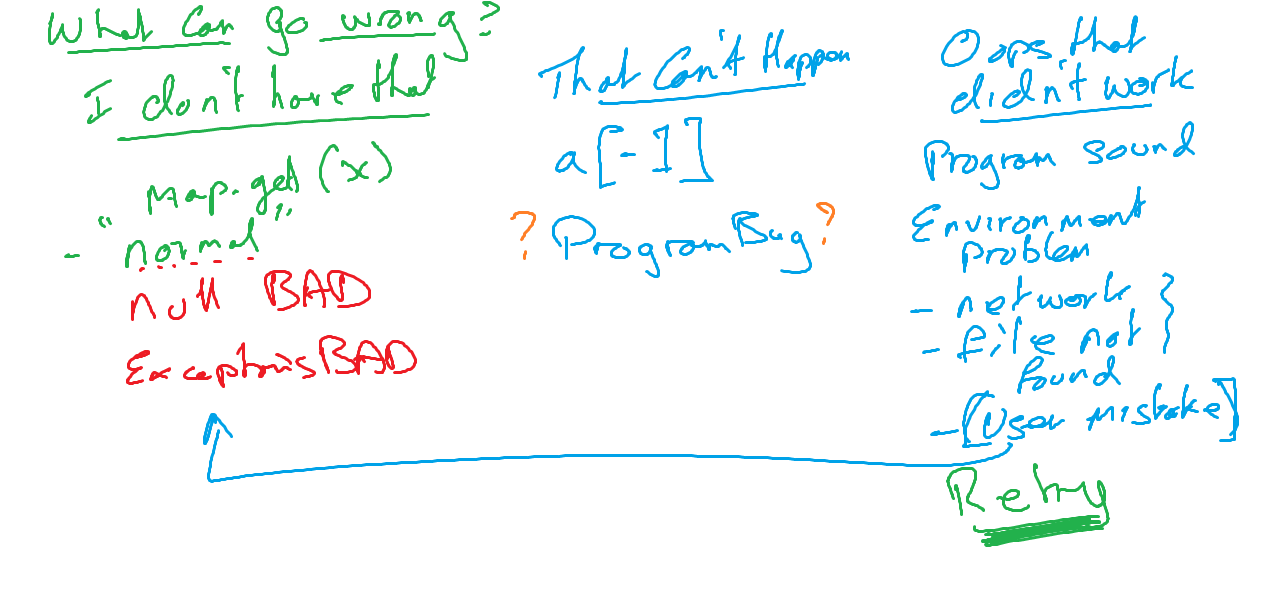 What can go wrong?
I don't have that
Map.get(x)
- "normal"
null BAD
Exceptions BAD
That Can't Happen
a[-1]
? Program Bug ?
Oops that
didn't work
Program sound
Environment
problem
- network }
- file not
found
- [User Mistake]
Retry